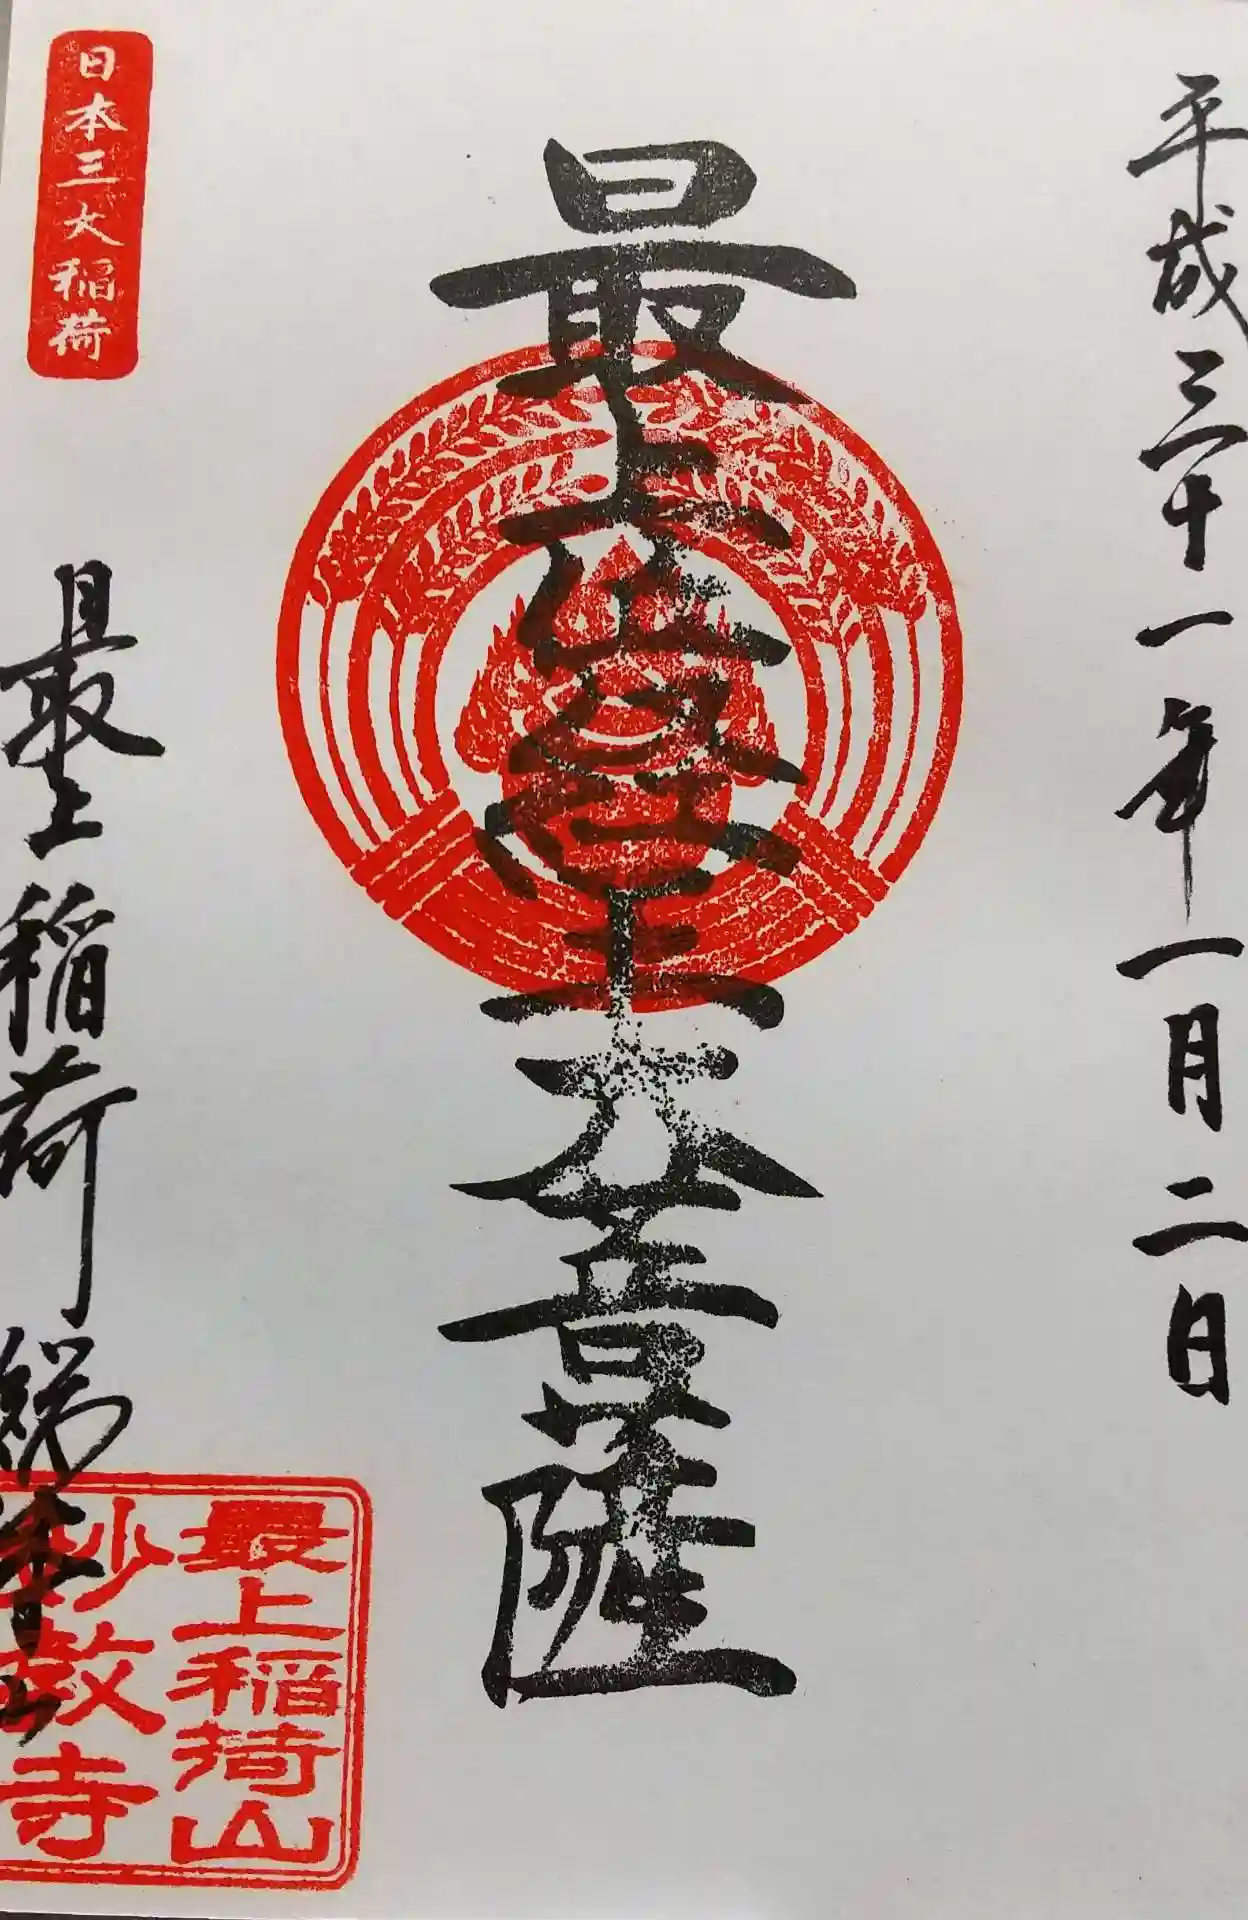 平成三十一年一月二日
最上位経王大菩薩
日本三大稲荷
最上稲荷 総本山
最上稲荷山
妙教寺